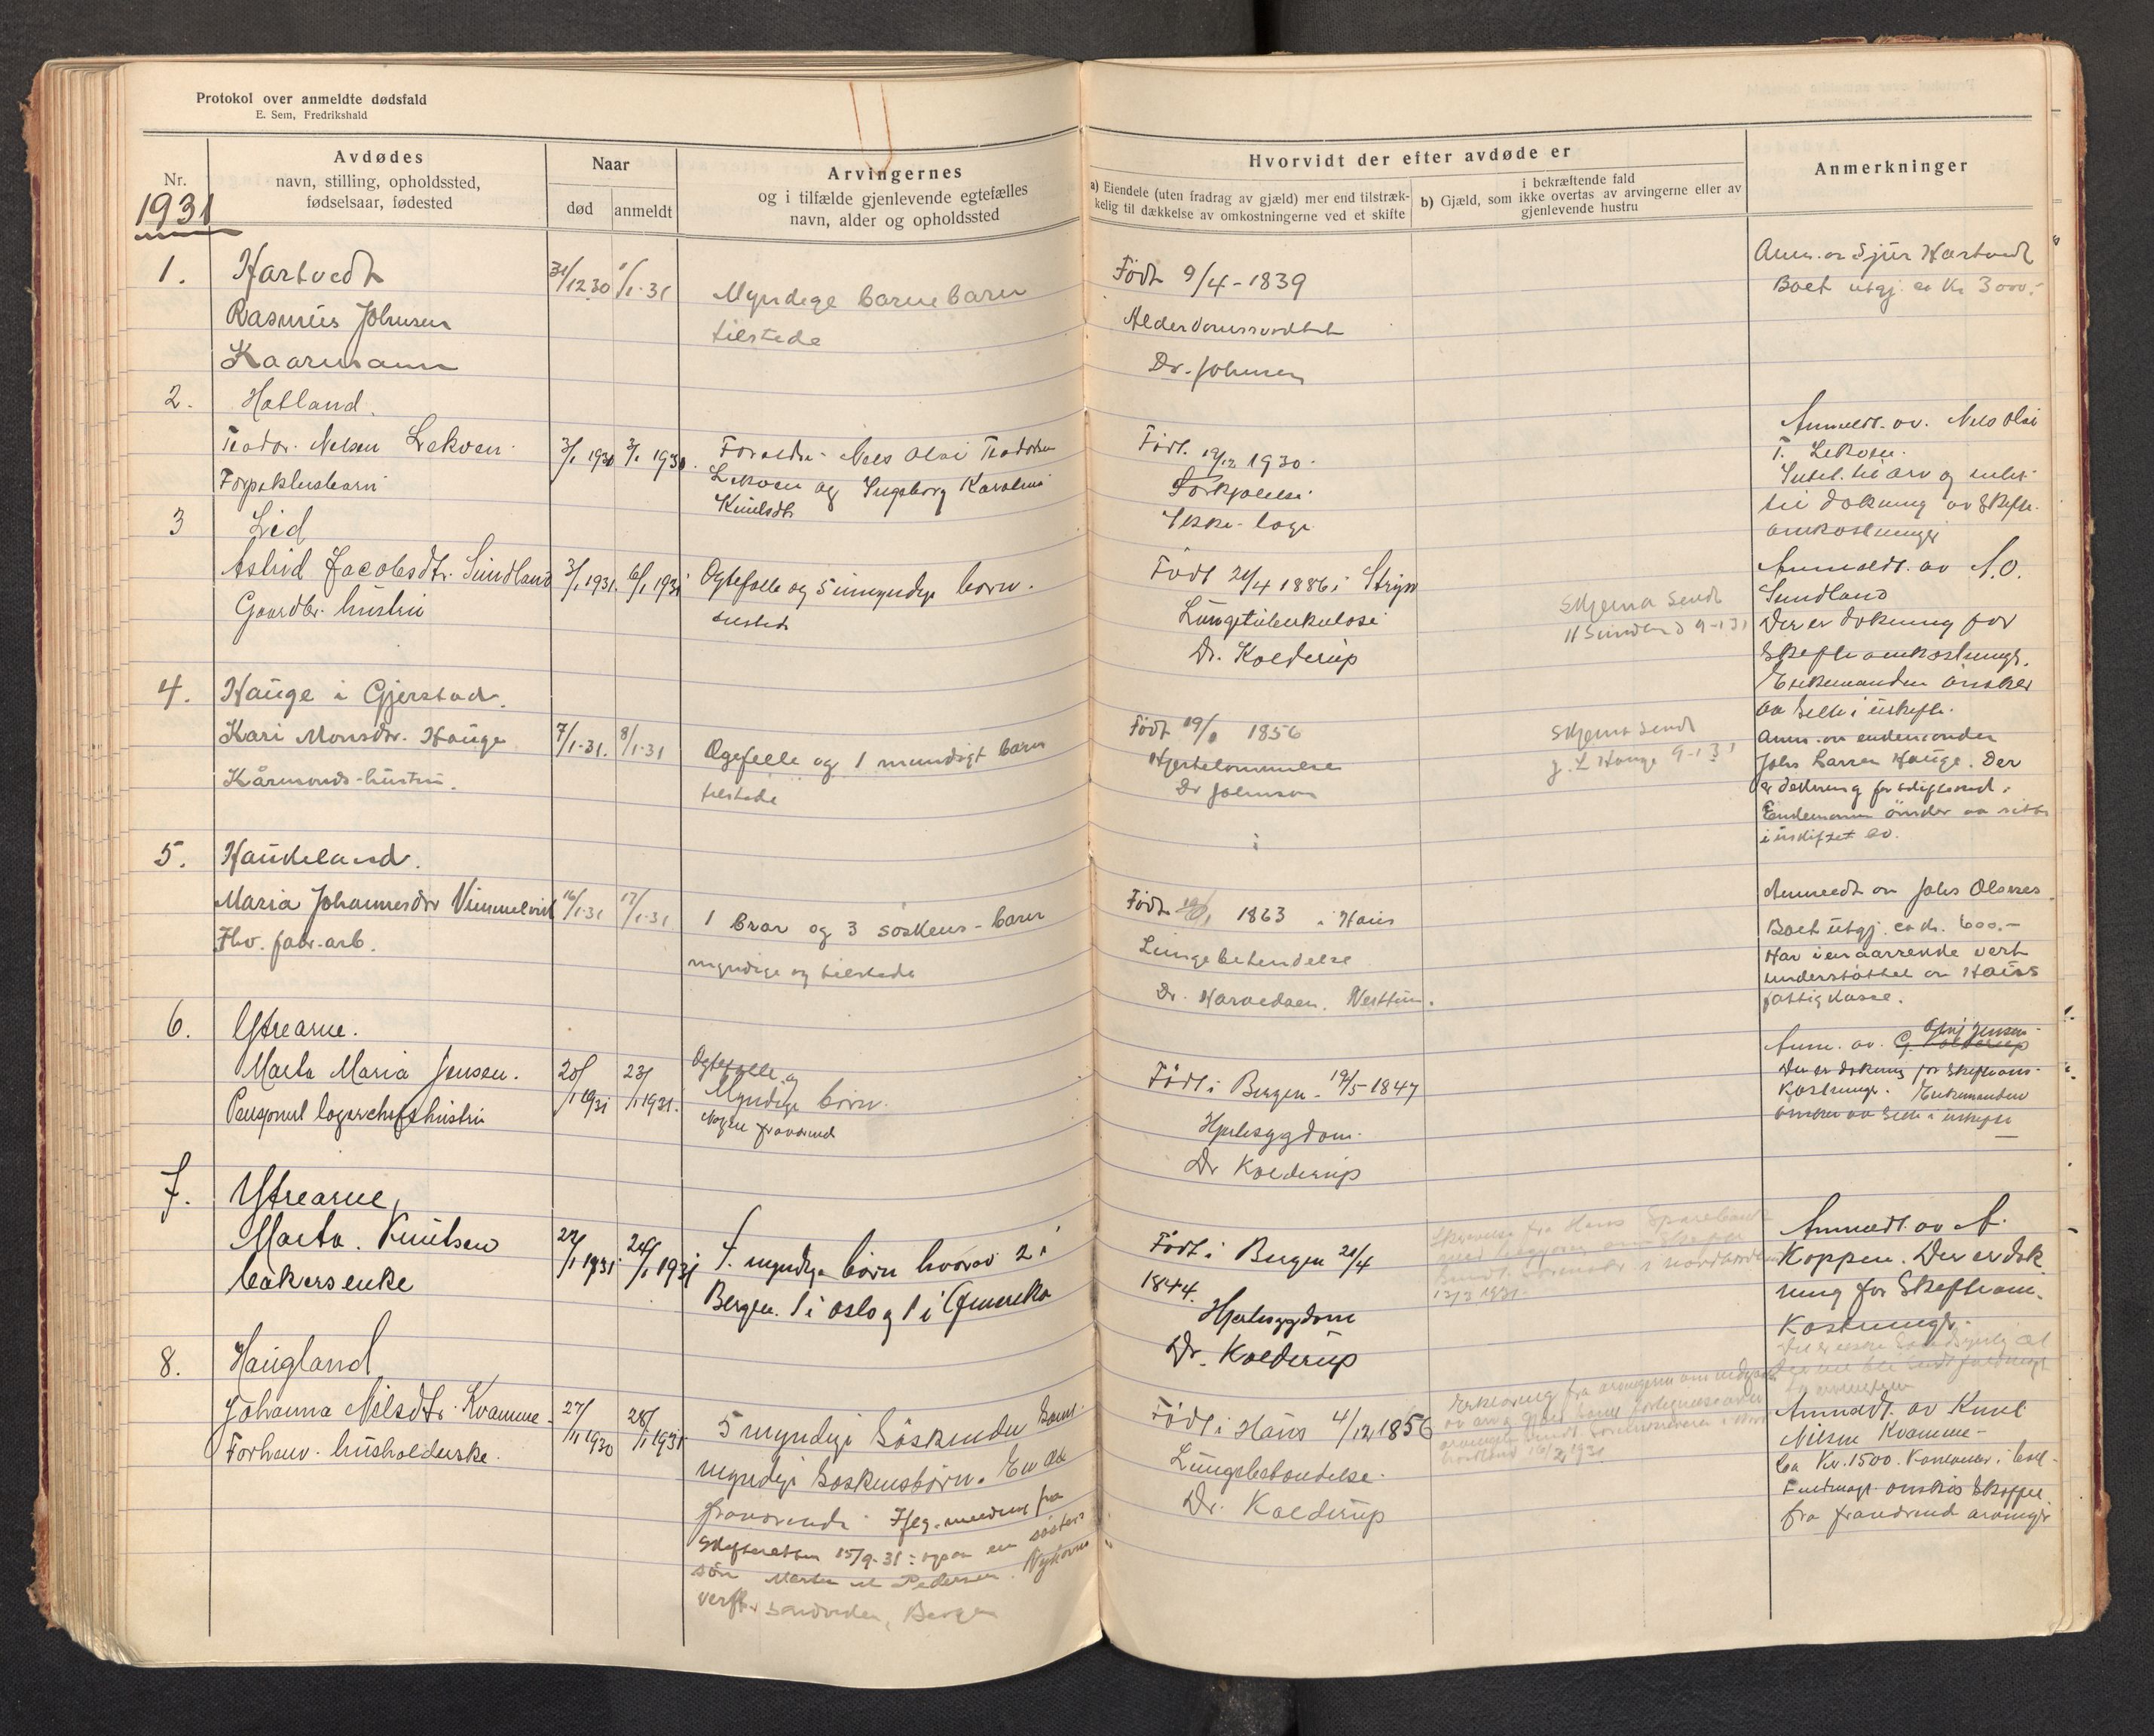 Protokol over anmeldte dødsfald
E. Sem, Fredrikshald
Nr.
Avdødes
navn, stilling, opholdssted,
fødselsaar, fødested
Naar
død
anmeldt
Arvingernes
og i tilfælde gjenlevende egtefælles
navn, alder og opholdssted
Hvorvidt der efter avdøde er
a) Eiendele (uten fradrag av gjæld) mer end tilstræk-
kelig til dækkelse av omkostningerne ved et skifte
i bekræftende fald
b) Gjæld, som ikke overtas av arvingerne eller av
gjenlevende hustru
Anmerkninger
1931
1.
Hartvedt
Rasmus Johnsen
Kaarmann
31/12 30
1/1-31
Myndige barnebarn
tilstede
Født 9/4-1839
Alderdomssvakhet
Dr. Johnsen
Anm. av Sjur Hartvedt
Boet utgj. ca Kr 3000.-
2.
Hatland.
Teodor Nelsen Lekven
3/1 1931
3/1 1931
Foreldre Nels Olai Teodorsen
Lekven og Ingeborg Karolina
Knutsdtr
Født. 19/12 1930.
Forkjølelse
Ikke læge
Anmeldt. av. Nels Olai
T. Lekven.
Intet til arv og intet
til dækning av Skifte-
omkostninger
3
Lid
Astrid Jacobsdtr. Sundland
Gaardbr. hustru
3/1 1931.
6/1 1931
Egtefælle og 5 umyndige børn.
tilstede
Født 21/4 1886 i Stryn
Lungetuberkulose
Dr. Kolderup
Skjema sendt
N Sundland 9-1 31
Anmeldt. av N.O.
Sundland
Der er dekning for
Skifteomkostninger.
Enkemanden ønsker
aa sitte i uskifte.
4.
Hauge i Gjerstad.
Kari Monsdtr. Hauge
Kårmands-hustru.
7/1-31.
8/1-31
Egefelle og 1 myndigt barn
tilstede
Født 19/1 1856
Hjertelammelse
Dr Johnson
Skjema sendt
J. L Hauge 9-1 31
Anm. av enkemanden
Johs Larsen Hauge. Der
er dekning for skifteomk.
Enkemann ønsker aa sitte
i uskiftet bo.
5.
Haukeland.
Maria Johannesdtr Vimmelvik
Fhv. fabr-arb.
16/1-31
17/1-31
1 bror og 3 søskens-barn
myndige og tilstede
Født 1863 i Haus
Lungebetendelse
Dr. Nesttun.
Anmeldt av Johs Olsnes
Boet utgj. ca kr. 600.-
Har i en aarrekke vert
understøttet av Haus
fattigkasse.
6.
Ytrearne.
Marta Maria Jensen.
Pensjonert lagerchefs hustru
20/1 1931
23/1 1931.
Egtefelle og
Myndige børn.
Nogen fraværende
Født i Bergen 19/5-1847
Hjertesygdom.
Dr Kolderup
Anm. av. G. Kolderup
Jensen
Der er dekning for Skifteom-
kostninger. Enkemanden
ønsker aa sitte i uskifte
7.
Ytrearne
Marta Knutsen
bakersenke
22/1 1931
26/1 1931
7. myndige børn hvorav 2 i
Bergen. 1 i Oslo og 1 i Amerika
Født i Bergen 21/4
1844.
Hjertesygdom
Dr. Kolderup
Skrivelse fra Haus Sparebank
12/3 1931.
Anmeldt av A.
Koppen. Der er dek
ning for Skifteom-
kostninger.
8.
Haugland
Johanna Nilsdtr. Kvamme
Forhenv. husholderske.
27/1 1930
28/1 1931
5 myndige Søskende samt
myndige Søskensbørn. En del
fraværende. Iflg. meddel fra
Skifteretten 15/9-31: ogsaa en søster-
søn Pedersen. Nyhavns
verft. Sandviken, Bergen
Født i Haus 4/12 1856
Lungebetændelse.
Dr. Kolderup
Erklæring fra arvingerne
16/2 1931
Anmeldt. av Knut
Nilsen Kvamme
Ca Kr. 1500. Kontanter i boet.
Fuldmagt ønskes Skaffet
fra fraværend arvinger